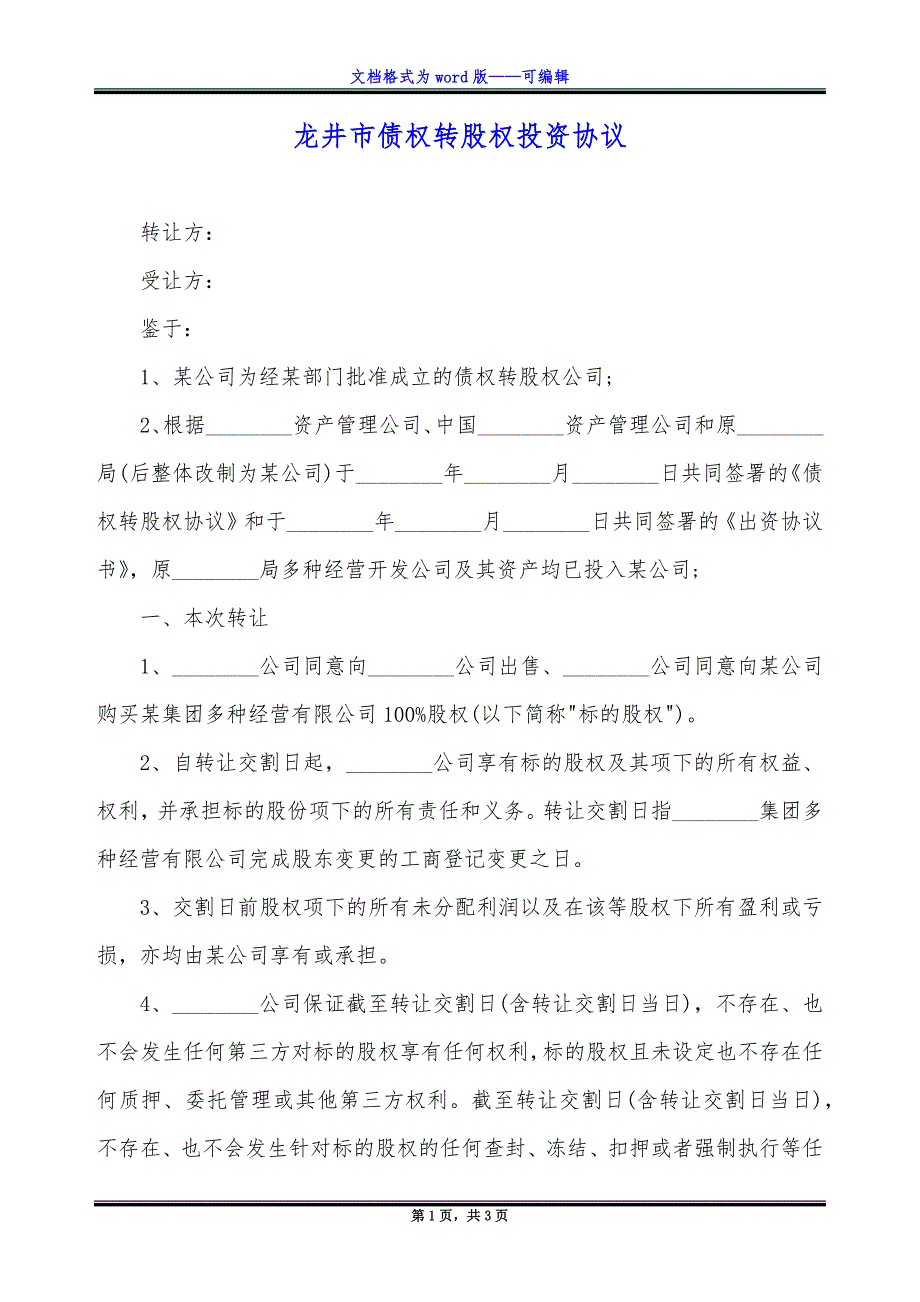 文档格式为 word 版——可编辑
龙井市债权转股权投资协议
转让方：
受让方：
鉴于：
1、某公司为经某部门批准成立的债权转股权公司;
2、根据________资产管理公司、中国________资产管理公司和原________
局(后整体改制为某公司)于________年________月________日共同签署的《债
权转股权协议》和于________年________月________日共同签署的《出资协议
书》，原________局多种经营开发公司及其资产均已投入某公司;
一、本次转让
1、________公司同意向________公司出售、________公司同意向某公司
购买某集团多种经营有限公司 100%股权(以下简称"标的股权")。
2、自转让交割日起，________公司享有标的股权及其项下的所有权益、
权利，并承担标的股份项下的所有责任和义务。转让交割日指________集团多
种经营有限公司完成股东变更的工商登记变更之日。
3、交割日前股权项下的所有未分配利润以及在该等股权下所有盈利或亏
损，亦均由某公司享有或承担。
4、________公司保证截至转让交割日(含转让交割日当日)，不存在、也
不会发生任何第三方对标的股权享有任何权利，标的股权且未设定也不存在任
何质押、委托管理或其他第三方权利。截至转让交割日(含转让交割日当日)，
不存在、也不会发生针对标的股权的任何查封、冻结、扣押或者强制执行等任
第 1 页，共 3 页